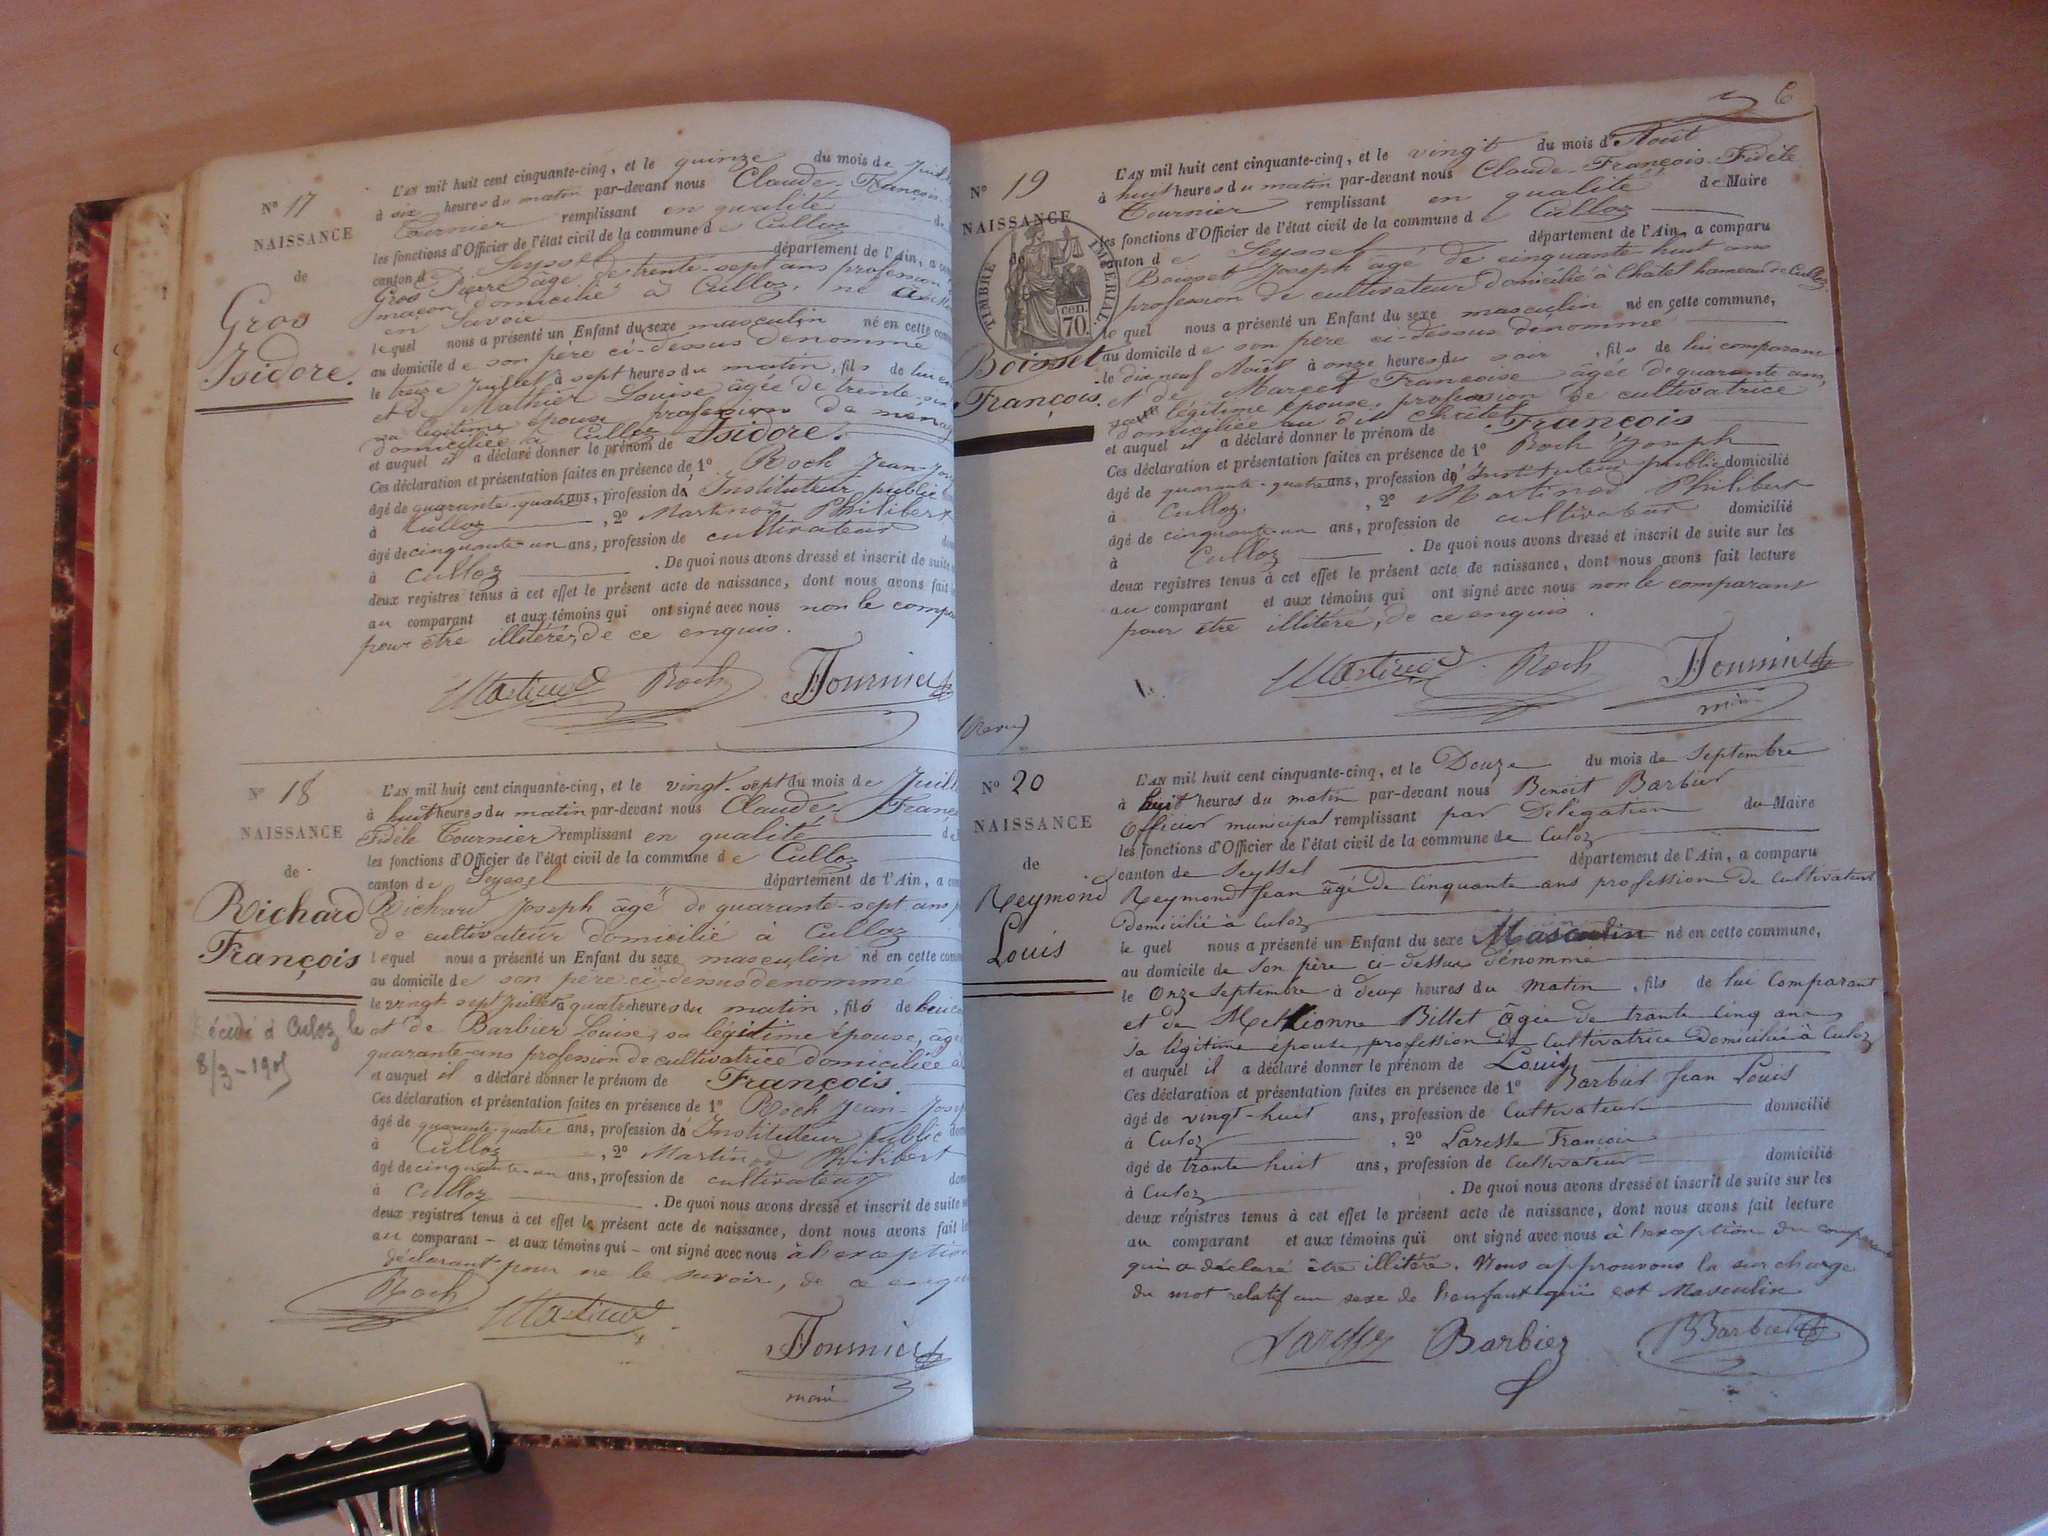 N° 17
NAISSANCE
de
Gros
Isidore.
L'AN mil huit cent cinquante-cinq, et le quinze du mois de
à six heures du matin par-devant nous Claude-François
Tournier remplissant en qualité
les fonctions d'Officier de l'état civil de la commune de Culloz
canton de Seyssel département de l'Ain, a
Gros Pierre âgé de trente-sept ans profession
maçon domicilié à Culloz, né
en Savoie
lequel nous a présenté un Enfant du sexe masculin né en cette
au domicile de son père ci-dessus dénommé
le treize Juillet à sept heures du matin, fils de lui
et de Mathier Louise âgée de trente
sa légitime épouse profession de
domiciliée à Culloz
et auquel il a déclaré donner le prénom de Isidore.
Ces déclaration et présentation faites en présence de 1° Roch Jean
âgé de quarante-quatre ans, profession d' Instituteur public
à Culloz , 2° Martinod Philibert
âgé de cinquante-un ans, profession de cultivateur
à Culloz . De quoi nous avons dressé et inscrit de suite
deux registres tenus à cet effet le présent acte de naissance, dont nous avons fait
au comparant et aux témoins qui ont signé avec nous non le
pour être illitéré, de ce enquis.
Martinod Roch Tournier
N° 18
NAISSANCE
de
Richard
François
Décédé à Culoz le
L'AN mil huit cent cinquante-cinq, et le vingt-sept du mois de
à huit heures du matin par-devant nous Claude
Fidèle Tournier remplissant en qualité
les fonctions d'Officier de l'état civil de la commune de Culloz
canton de Seyssel département de l'Ain, a
Richard Joseph âgé de quarante-sept ans
de cultivateur domicilié à Culloz
lequel nous a présenté un Enfant du sexe masculin né en cette
au domicile de son père ci-dessus dénommé
le vingt sept Juillet à quatre heures du matin, fils de
et de Barbier Louise, sa légitime épouse,
quarante-ans profession de cultivatrice domiciliée à
et auquel il a déclaré donner le prénom de François.
Ces déclaration et présentation faites en présence de 1° Roch Jean
âgé de quarante-quatre ans, profession d' Instituteur public
à Culloz , 2° Martinod Philibert
âgé de cinquante-un ans, profession de cultivateur
à Culloz . De quoi nous avons dressé et inscrit de suite
deux registres tenus à cet effet le présent acte de naissance, dont nous avons fait
au comparant - et aux témoins qui - ont signé avec nous à l'exception
déclarant pour ne le savoir, de ce
Roch
Martinod
Tournier
maire
6
N° 19
NAISSANCE
de
TIMBRE IMPERIAL.
70 cen.
Boisset
François.
L'AN mil huit cent cinquante-cinq, et le vingt du mois d'Août
à huit heures du matin par-devant nous Claude-François-Fidèle
Tournier remplissant en qualité de Maire
les fonctions d'Officier de l'état civil de la commune de Culloz
canton de Seyssel département de l'Ain, a comparu
Boisset Joseph âgé de cinquante huit ans
profession de cultivateur domicilié à Châtel hameau de Culloz.
le quel nous a présenté un Enfant du sexe masculin né en cette commune,
au domicile de son père ci-dessus dénommé
le dix neuf Août à onze heures du soir, fils de lui comparant
et de Marcet Françoise âgée de quarante ans,
légitime épouse, profession de cultivatrice
domiciliée au dit Châtel
et auquel il a déclaré donner le prénom de François
Ces déclaration et présentation faites en présence de 1° Roch Joseph
âgé de quarante-quatre ans, profession d' Instituteur public domicilié
à Culloz, , 2° Martinod Philibert
âgé de cinquante-un ans, profession de cultivateur domicilié
à Culloz . De quoi nous avons dressé et inscrit de suite sur les
deux registres tenus à cet effet le présent acte de naissance, dont nous avons fait lecture
au comparant et aux témoins qui ont signé avec nous non le comparant
pour être illitéré, de ce enquis.
Martinod Roch Tournier
N° 20
NAISSANCE
de
Reymond
Louis
L'AN mil huit cent cinquante-cinq, et le Douze du mois de Septembre
à huit heures du matin par-devant nous Benoit Barbier
Officier municipal remplissant par Délégation du Maire
les fonctions d'Officier de l'état civil de la commune de Culoz
canton de Seyssel département de l'Ain, a comparu
Reymond Jean âgé de cinquante ans profession de cultivateur
domicilié à Culoz
le quel nous a présenté un Enfant du sexe Masculin né en cette commune,
au domicile de son père ci-dessus dénommé
le Onze Septembre à deux heures du matin, fils de lui comparant
et de Billet âgée de trante cinq ans
sa légitime épouse, profession de cultivatrice Domiciliée à Culoz
et auquel il a déclaré donner le prénom de Louis
Ces déclaration et présentation faites en présence de 1° Barbier Jean Louis
âgé de vingt-huit ans, profession de Cultivateur domicilié
à Culoz , 2° François
âgé de trante huit ans, profession de Cultivateur domicilié
à Culoz . De quoi nous avons dressé et inscrit de suite sur les
deux régistres tenus à cet effet le présent acte de naissance, dont nous avons fait lecture
au comparant et aux témoins qui ont signé avec nous à l'exception du
qui a déclaré être illitéré. Nous approuvons la surcharge
du mot relatif au sexe de l'enfant qui est Masculin
Barbier BBarbier